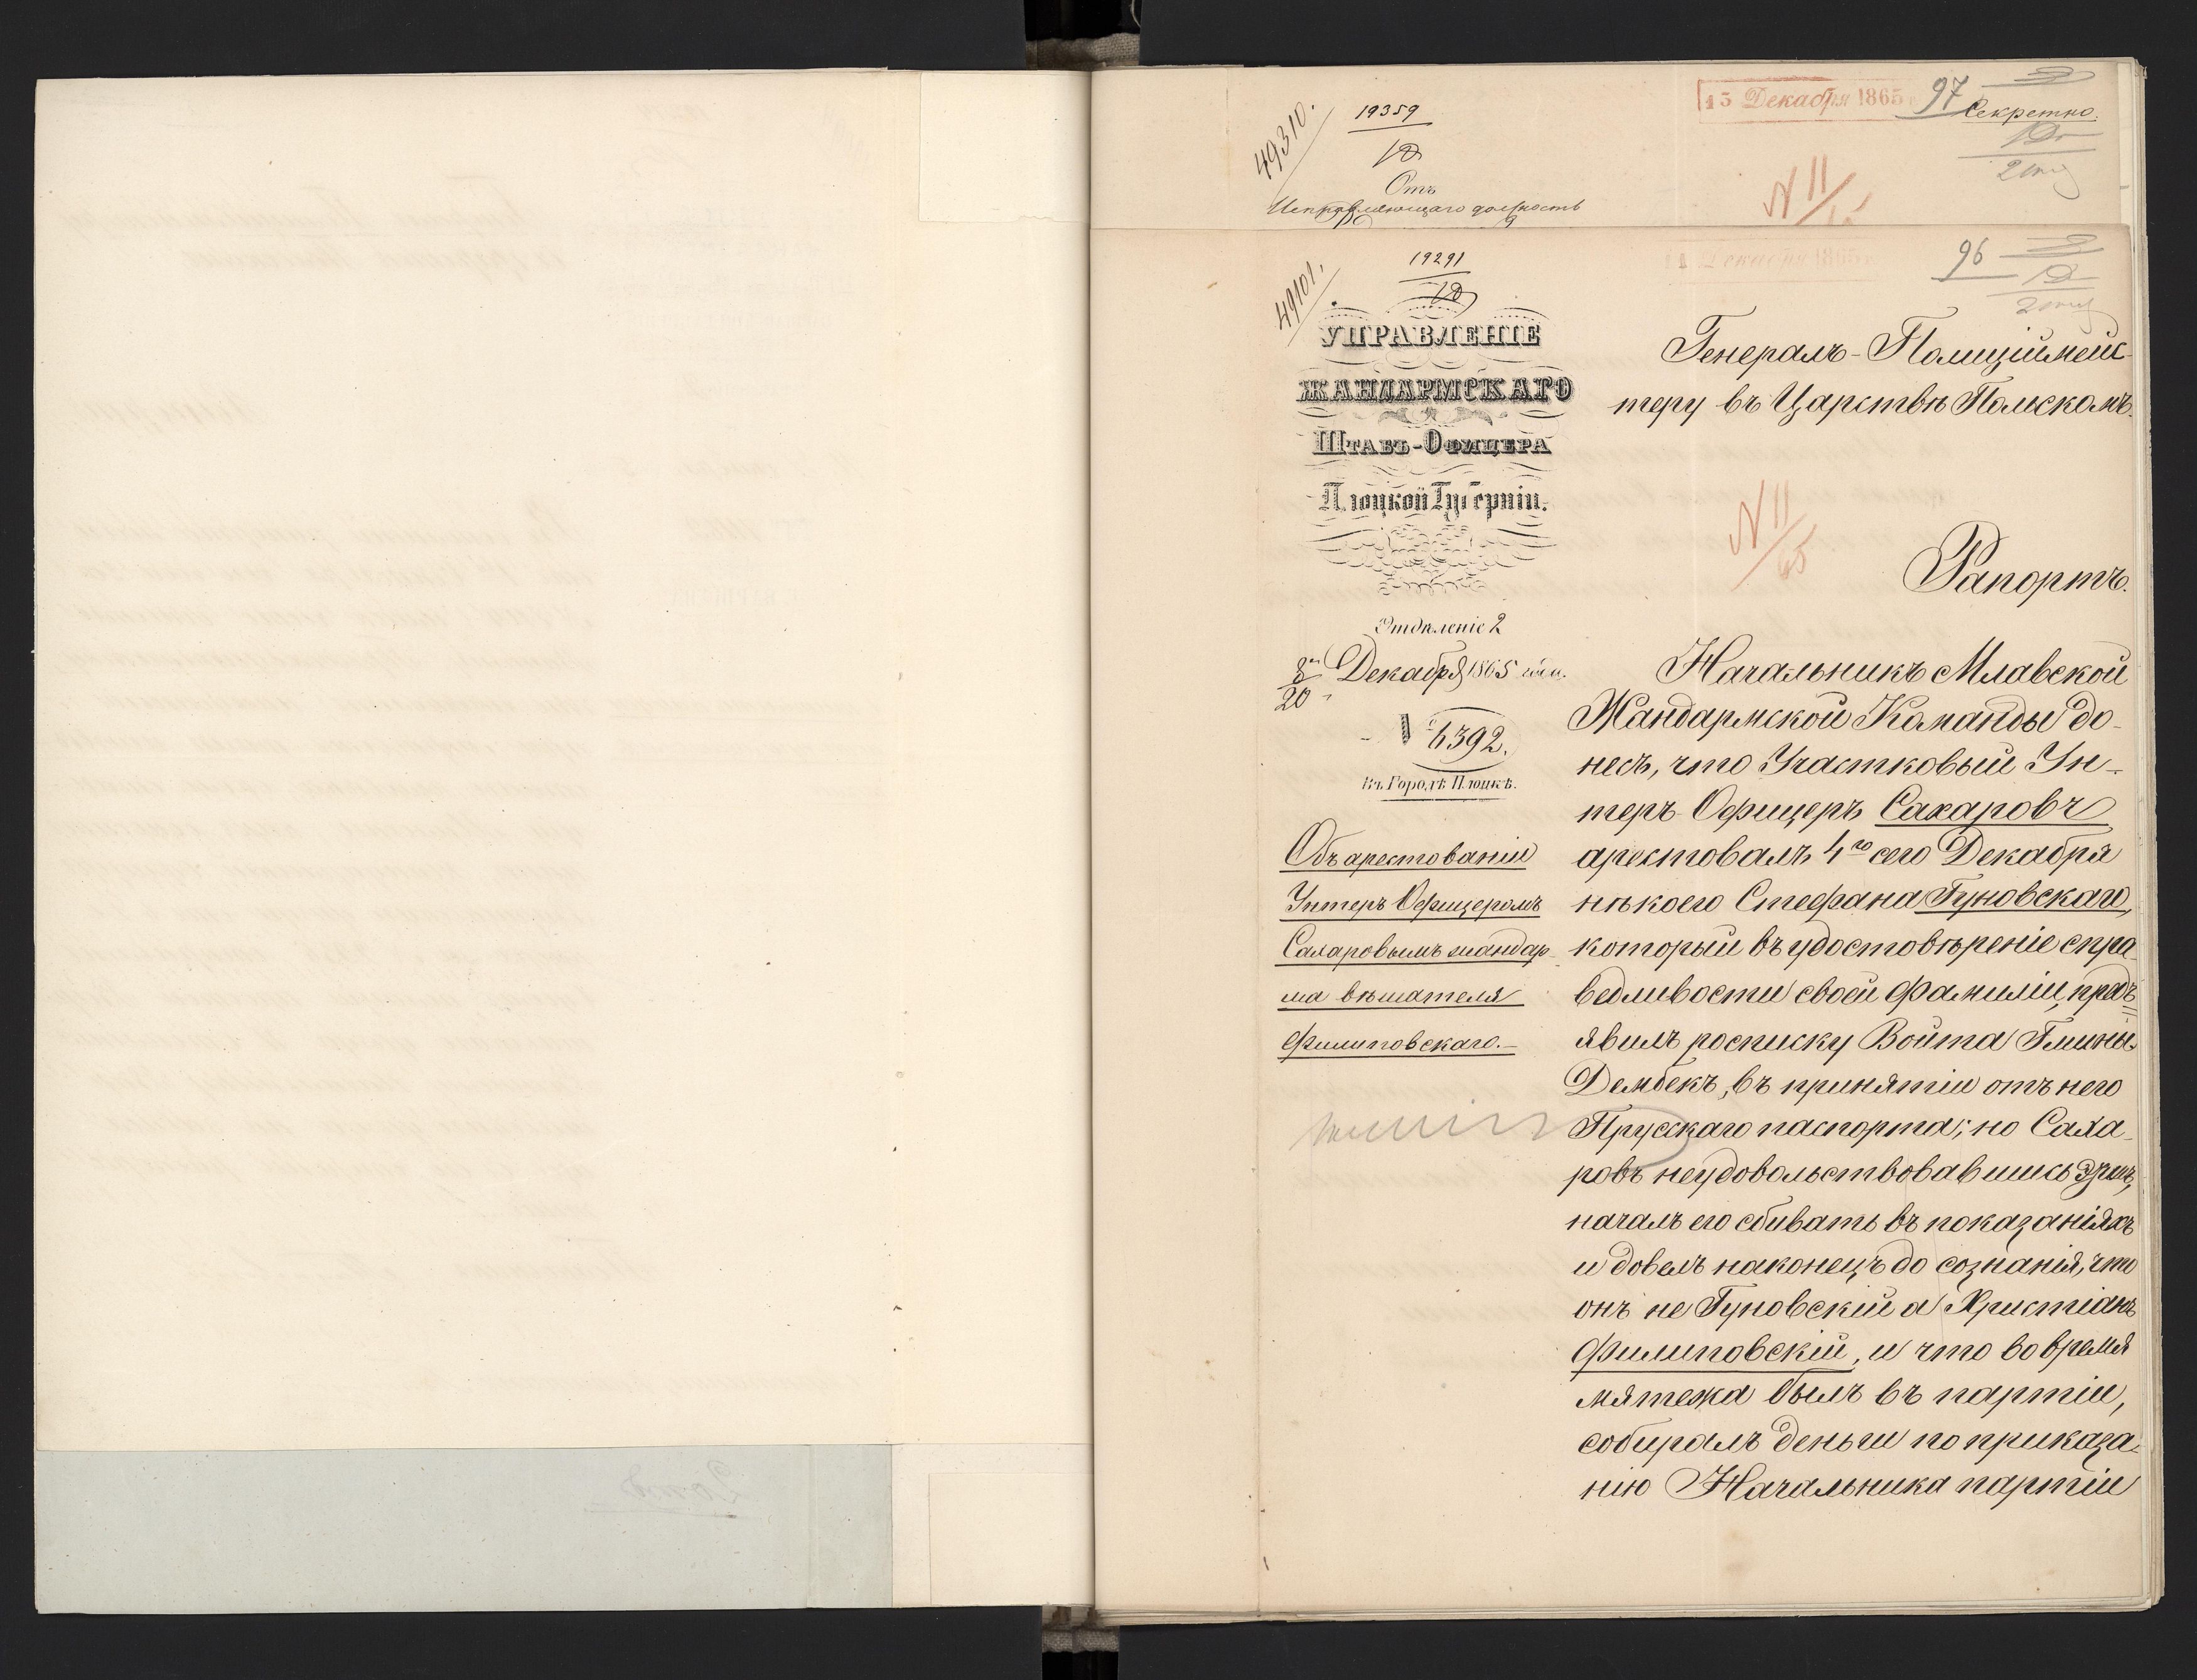 49310.
19359
15 Декабря 1865
97
Секретно.
Отъ
Исправляющаго должность
N 11/65
49101.
19291
96
УПРАВЛЕНІЕ
ЖАНДАРМСКАГО
ШТАБЪ-ОФИЦЕРА
Плоцкой Губерніи.
Отдѣленіе 2
8/20 Декабря 1865 года.
N 6392.
Въ Городѣ Плоцкѣ.
Объ арестованіи
Унтеръ Офицеромъ
Сахаровымъ жандар-
ма вѣшателя
Филиповскаго.-
Генералъ-Полиціймейс-
теру въ Царствѣ Польскомъ.
N 11/65
Рапортъ.
Начальникъ Млавской
Жандармской Команды до-
несъ, что Участковый Ун-
теръ-Офицеръ Сахаровъ
арестовалъ 4го сего Декабря
нѣкоего Стефана Гуновскаго,
который въ удостовѣреніе спра-
ведливости своей фамиліи, предъ-
явилъ росписку Войта Гмины
Дембекъ, въ принятіи отъ него
Прусскаго паспорта; но Саха-
ровъ неудовольствовавшись этимъ,
началъ его сбивать въ показаніяхъ
и довелъ наконецъ до сознанія, что
онъ не Гуновскій а Христіанъ
Филиповскій, и что во время
мятежа былъ въ партіи,
собиралъ деньги по приказа-
нію Начальника партіи